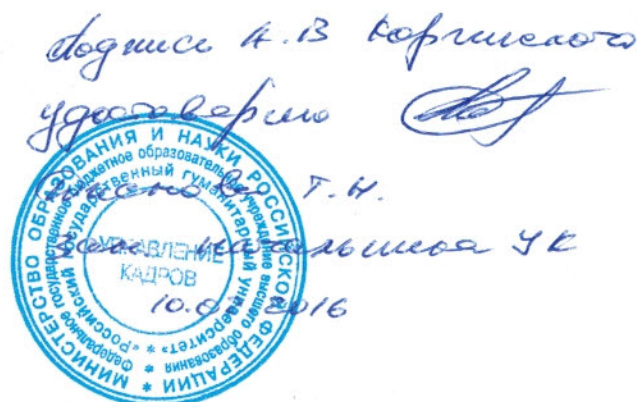 Подпись А.В Корчинского
удостоверяю
Т.Н.
Зам. начальника УК
2016
МИНИСТЕРСТВО ОБРАЗОВАНИЯ И НАУКИ РОССИЙСКОЙ ФЕДЕРАЦИИ *
Федеральное государственное бюджетное образовательное учреждение высшего образования *
«Российский государственный гуманитарный университет» *
УПРАВЛЕНИЕ
КАДРОВ